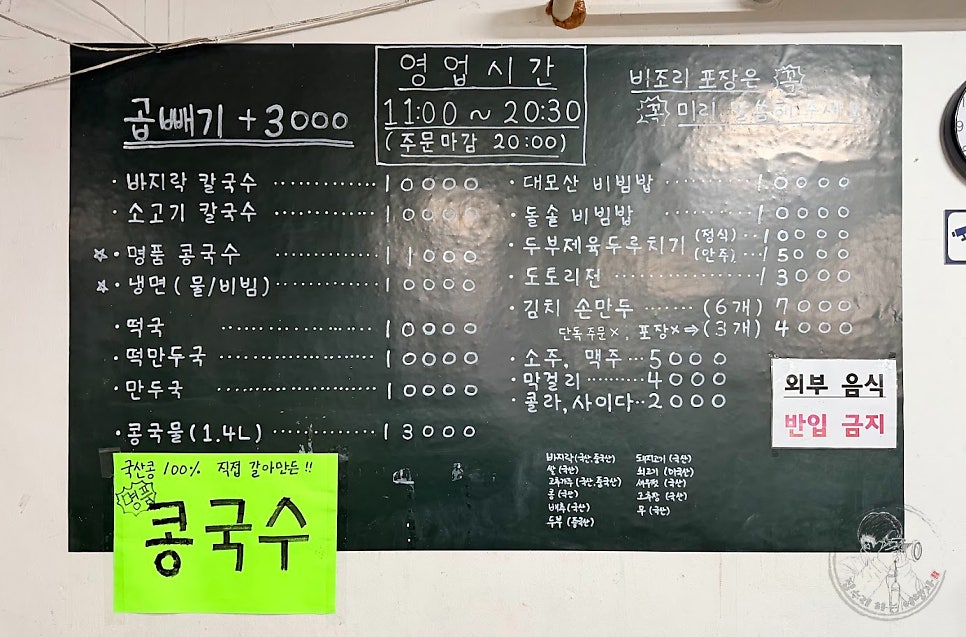 영업시간
11:00 ~ 20:30
(주문마감 20:00)
곱빼기 +3000
비조리 포장은 꼭
꼭 미리 말씀해주세요
· 바지락 칼국수 ············ 10000
· 소고기 칼국수 ············ 10000
☆ · 명품 콩국수 ············ 11000
☆ · 냉면(물/비빔) ············ 10000
· 떡국 ············ 10000
· 떡만두국 ············ 10000
· 만두국 ············ 10000
· 콩국물(1.4L) ············ 13000
· 대모산 비빔밥 ············ 10000
· 돌솥 비빔밥 ············ 10000
· 두부제육두루치기 (정식)··· 10000
(안주)··· 15000
· 도토리전 ············ 13000
· 김치 손만두 ······· (6개) 7000
단독주문×, 포장×⇒(3개) 4000
· 소주, 맥주 ··· 5000
· 막걸리 ········· 4000
· 콜라, 사이다 ·· 2000
외부 음식
반입 금지
바지락(국산,중국산)
쌀(국산)
고추가루(국산,중국산)
콩(국산)
배추(국산)
두부(중국산)
돼지고기(국산)
쇠고기(미국산)
새우젓(국산)
고추장(국산)
무(국산)
국산콩 100% 직접 갈아만든!!
명품
콩국수